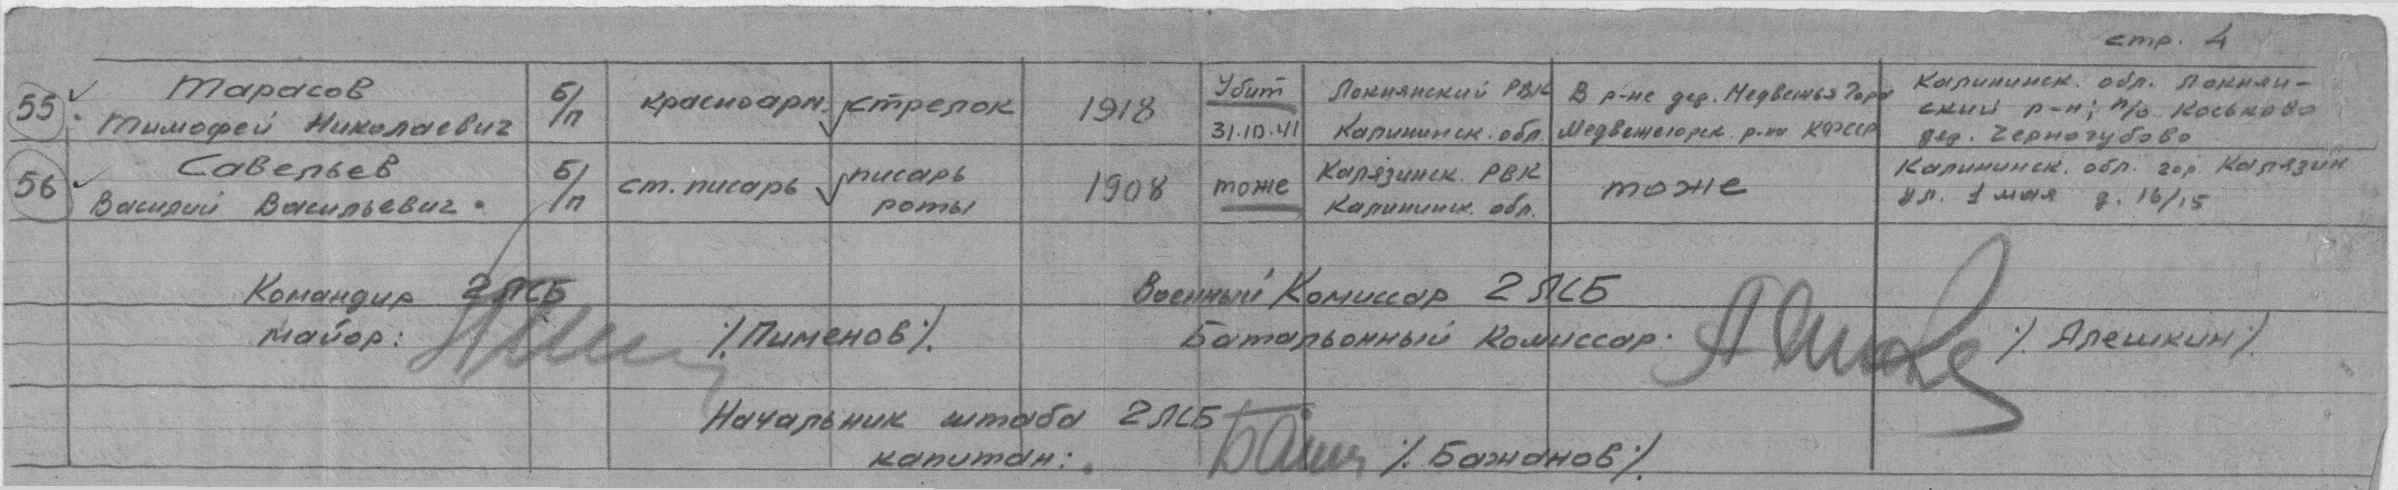 стр. 4
55. Тарасов Тимофей Николаевич б/п красноарм. стрелок 1918 Убит 31.10.41 Локнянский РВК Калининск. обл. В р-не дер. Медвежья Гора Медвежегорск. р-на КФССР Калининск. обл. Локнян-
ский р-н; п/о Коськово
дер. Черногубово
56 Савельев Василий Васильевич. б/п ст. писарь писарь роты 1908 тоже Калязинск. РВК Калининск. обл. тоже Калининск. обл. гор Калязин
ул. 1 мая д. 16/15
Командир 2 ЛСБ
майор: /Пименов/.
Военный Комиссар 2 ЛСБ
Батальонный Комиссар: /Алешкин/.
Начальник штаба 2 ЛСБ
капитан: /Бажанов/.